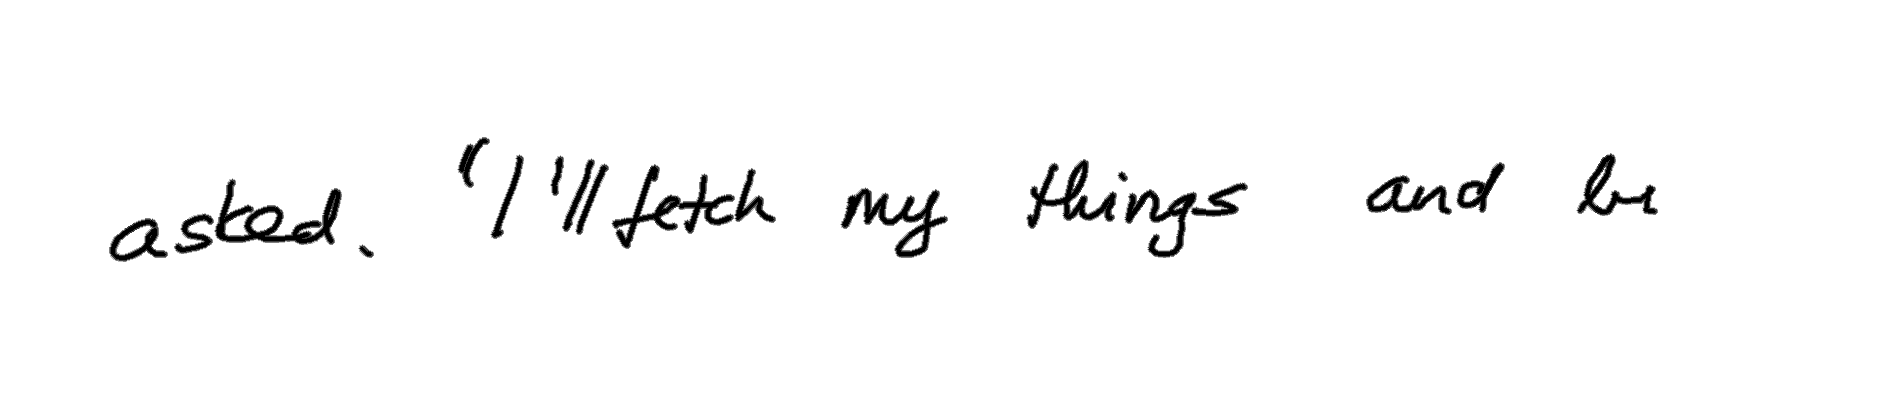 asked. "I'll fetch my things and be